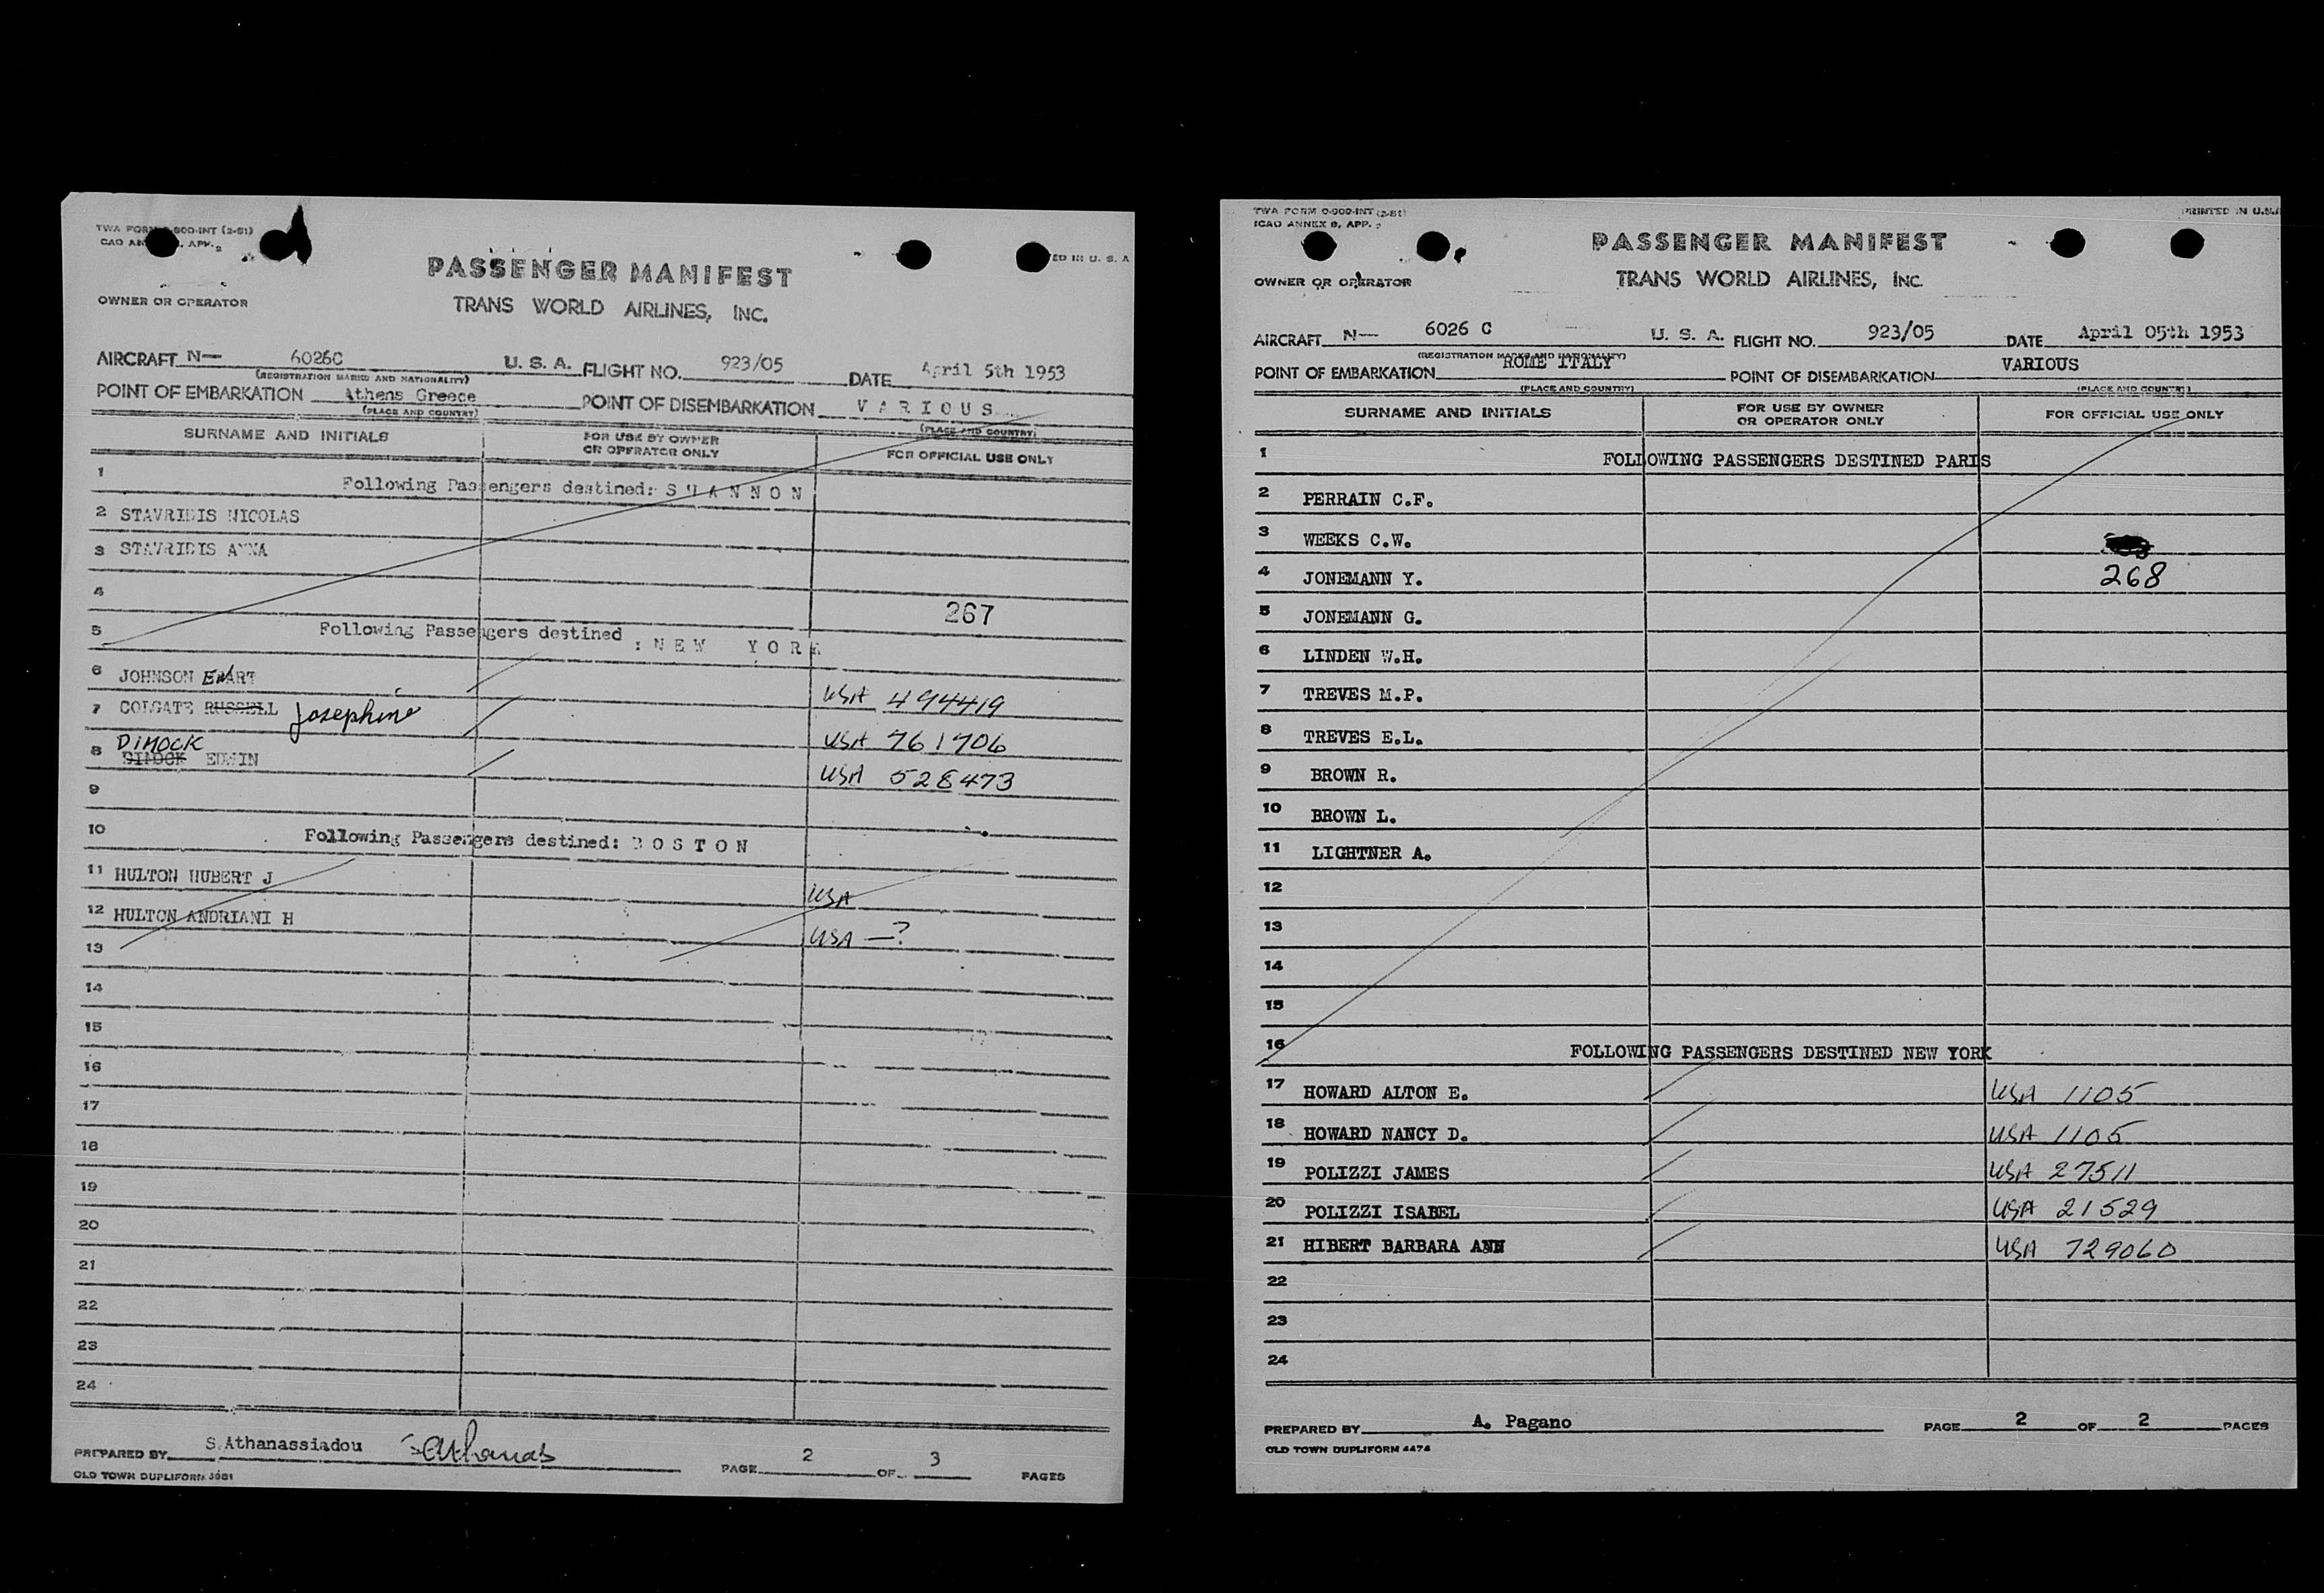 TWA FORM 0-900-INT (2-51)
PASSENGER MANIFEST
OWNER OR OPERATOR
TRANS WORLD AIRLINES, INC.
AIRCRAFT N— 6026C U. S. A. FLIGHT NO. 923/05 DATE April 5th 1953
(REGISTRATION MARKS AND NATIONALITY)
POINT OF EMBARKATION Athens Greece POINT OF DISEMBARKATION V A R I O U S
(PLACE AND COUNTRY) (PLACE AND COUNTRY)
SURNAME AND INITIALS FOR USE BY OWNER OR OPERATOR ONLY FOR OFFICIAL USE ONLY
1 Following Passengers destined: S H A N N O N
2 STAVRIDIS NICOLAS
3 STAVRIDIS ANNA
4 267
5 Following Passengers destined : N E W Y O R K
6 JOHNSON EWART USA 494419
7 COLGATE RUSSELL Josephine USA 761706
DIMOCK
8 EDWIN USA 528473
9
10 Following Passengers destined: B O S T O N
11 HULTON HUBERT J USA
12 HULTON ANDRIANI H USA —?
13
14
15
16
17
18
19
20
21
22
23
24
PREPARED BY S.Athanassiadou SAthanas PAGE 2 OF 3 PAGES
OLD TOWN DUPLIFORM
TWA FORM 0-900-INT (2-51) PRINTED IN U.S.A
ICAO ANNEX 9, APP. 2
PASSENGER MANIFEST
OWNER OR OPERATOR
TRANS WORLD AIRLINES, INC.
AIRCRAFT N— 6026 C U. S. A. FLIGHT NO. 923/05 DATE April 05th 1953
(REGISTRATION MARKS AND NATIONALITY)
POINT OF EMBARKATION ROME ITALY POINT OF DISEMBARKATION VARIOUS
(PLACE AND COUNTRY) (PLACE AND COUNTRY)
SURNAME AND INITIALS FOR USE BY OWNER OR OPERATOR ONLY FOR OFFICIAL USE ONLY
1 FOLLOWING PASSENGERS DESTINED PARIS
2 PERRAIN C.F.
3 WEEKS C.W.
4 JONEMANN Y. 268
5 JONEMANN G.
6 LINDEN W.H.
7 TREVES M.P.
8 TREVES E.L.
9 BROWN R.
10 BROWN L.
11 LIGHTNER A.
12
13
14
15
16 FOLLOWING PASSENGERS DESTINED NEW YORK
17 HOWARD ALTON E. USA 1105
18 HOWARD NANCY D. USA 1105
19 POLIZZI JAMES USA 27511
20 POLIZZI ISABEL USA 21529
21 HIBERT BARBARA ANN USA 729060
22
23
24
PREPARED BY A. Pagano PAGE 2 OF 2 PAGES
OLD TOWN DUPLIFORM 4474